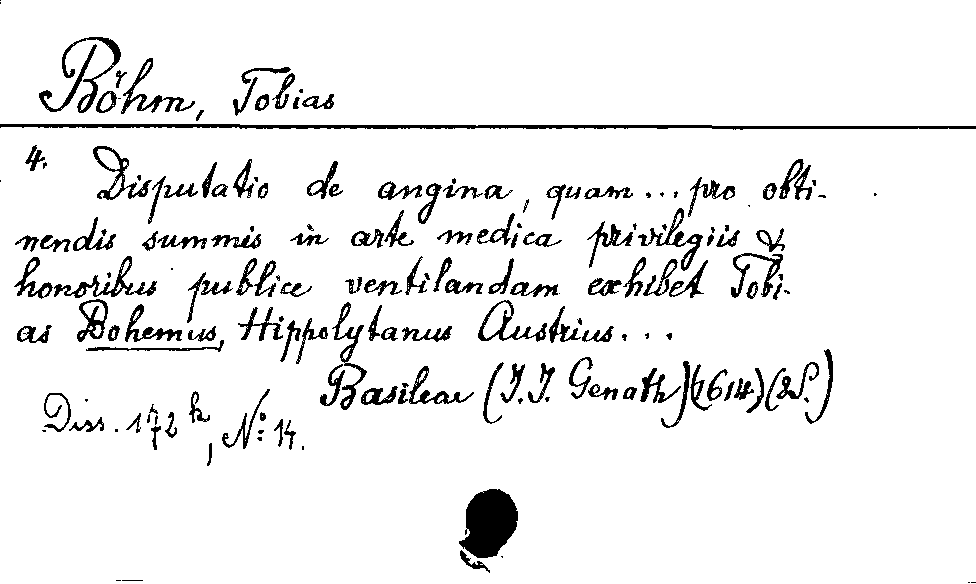 Böhm, Tobias
4. Disputatio de angina, quam... pro obti-
nendis summis in arte medica privilegiis &
honoribus publice ventilandam exhibet Tobi-
as Bohemus, Hippolytanus Austrius...
Basileae (J.J. Genath) (1614) (2S.)
Diss. 172 k, No: 14.